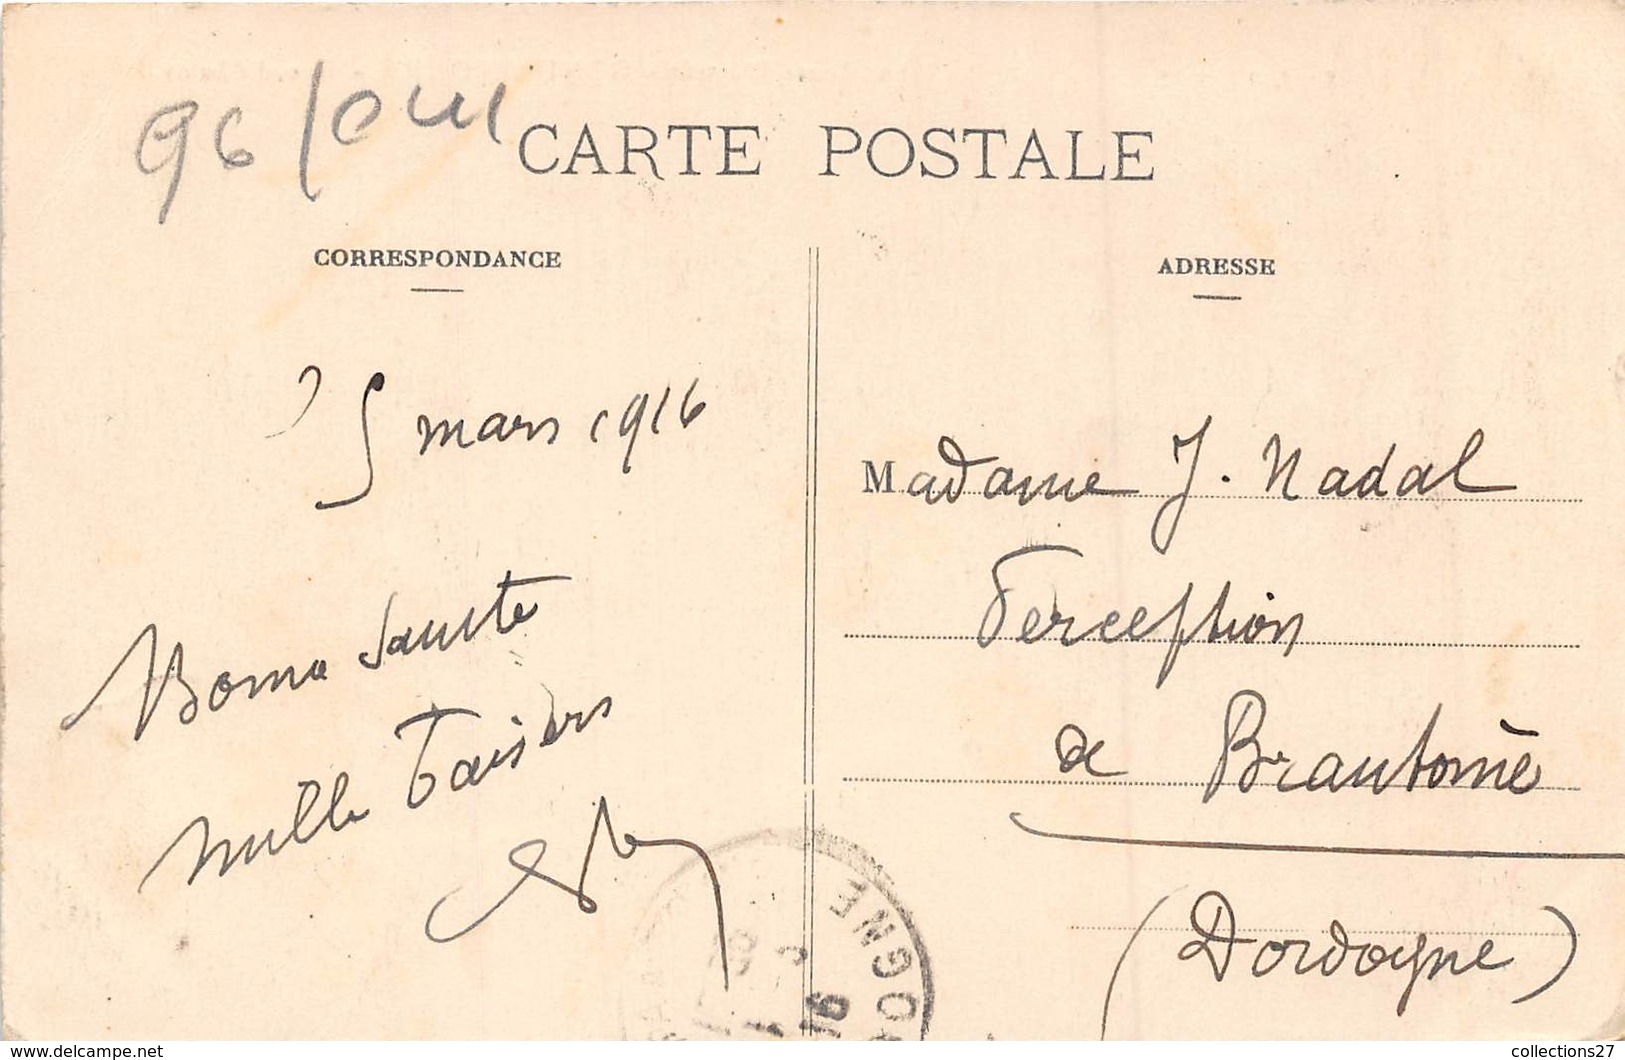 CARTE POSTALE
CORRESPONDANCE
ADRESSE
5 mars 1916
Bonne Santé
mille Baisers
Madame J. Nadal
Perception
de Brantôme
(Dordogne)
OGNE
16
www.delcampe.net
collections27